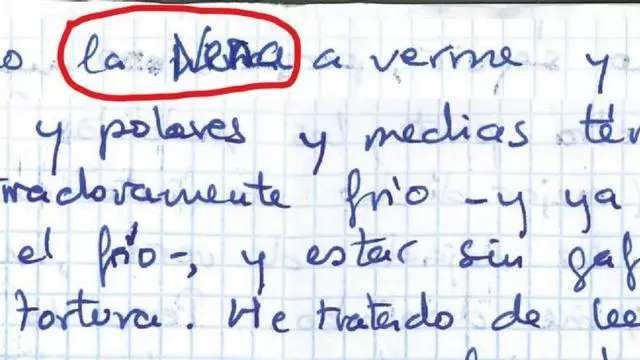 o la Nena a verme y
y polares y medias tér
radoramente frío - y ya
el frío -, y estar sin gaf
tortura. He tratado de lee